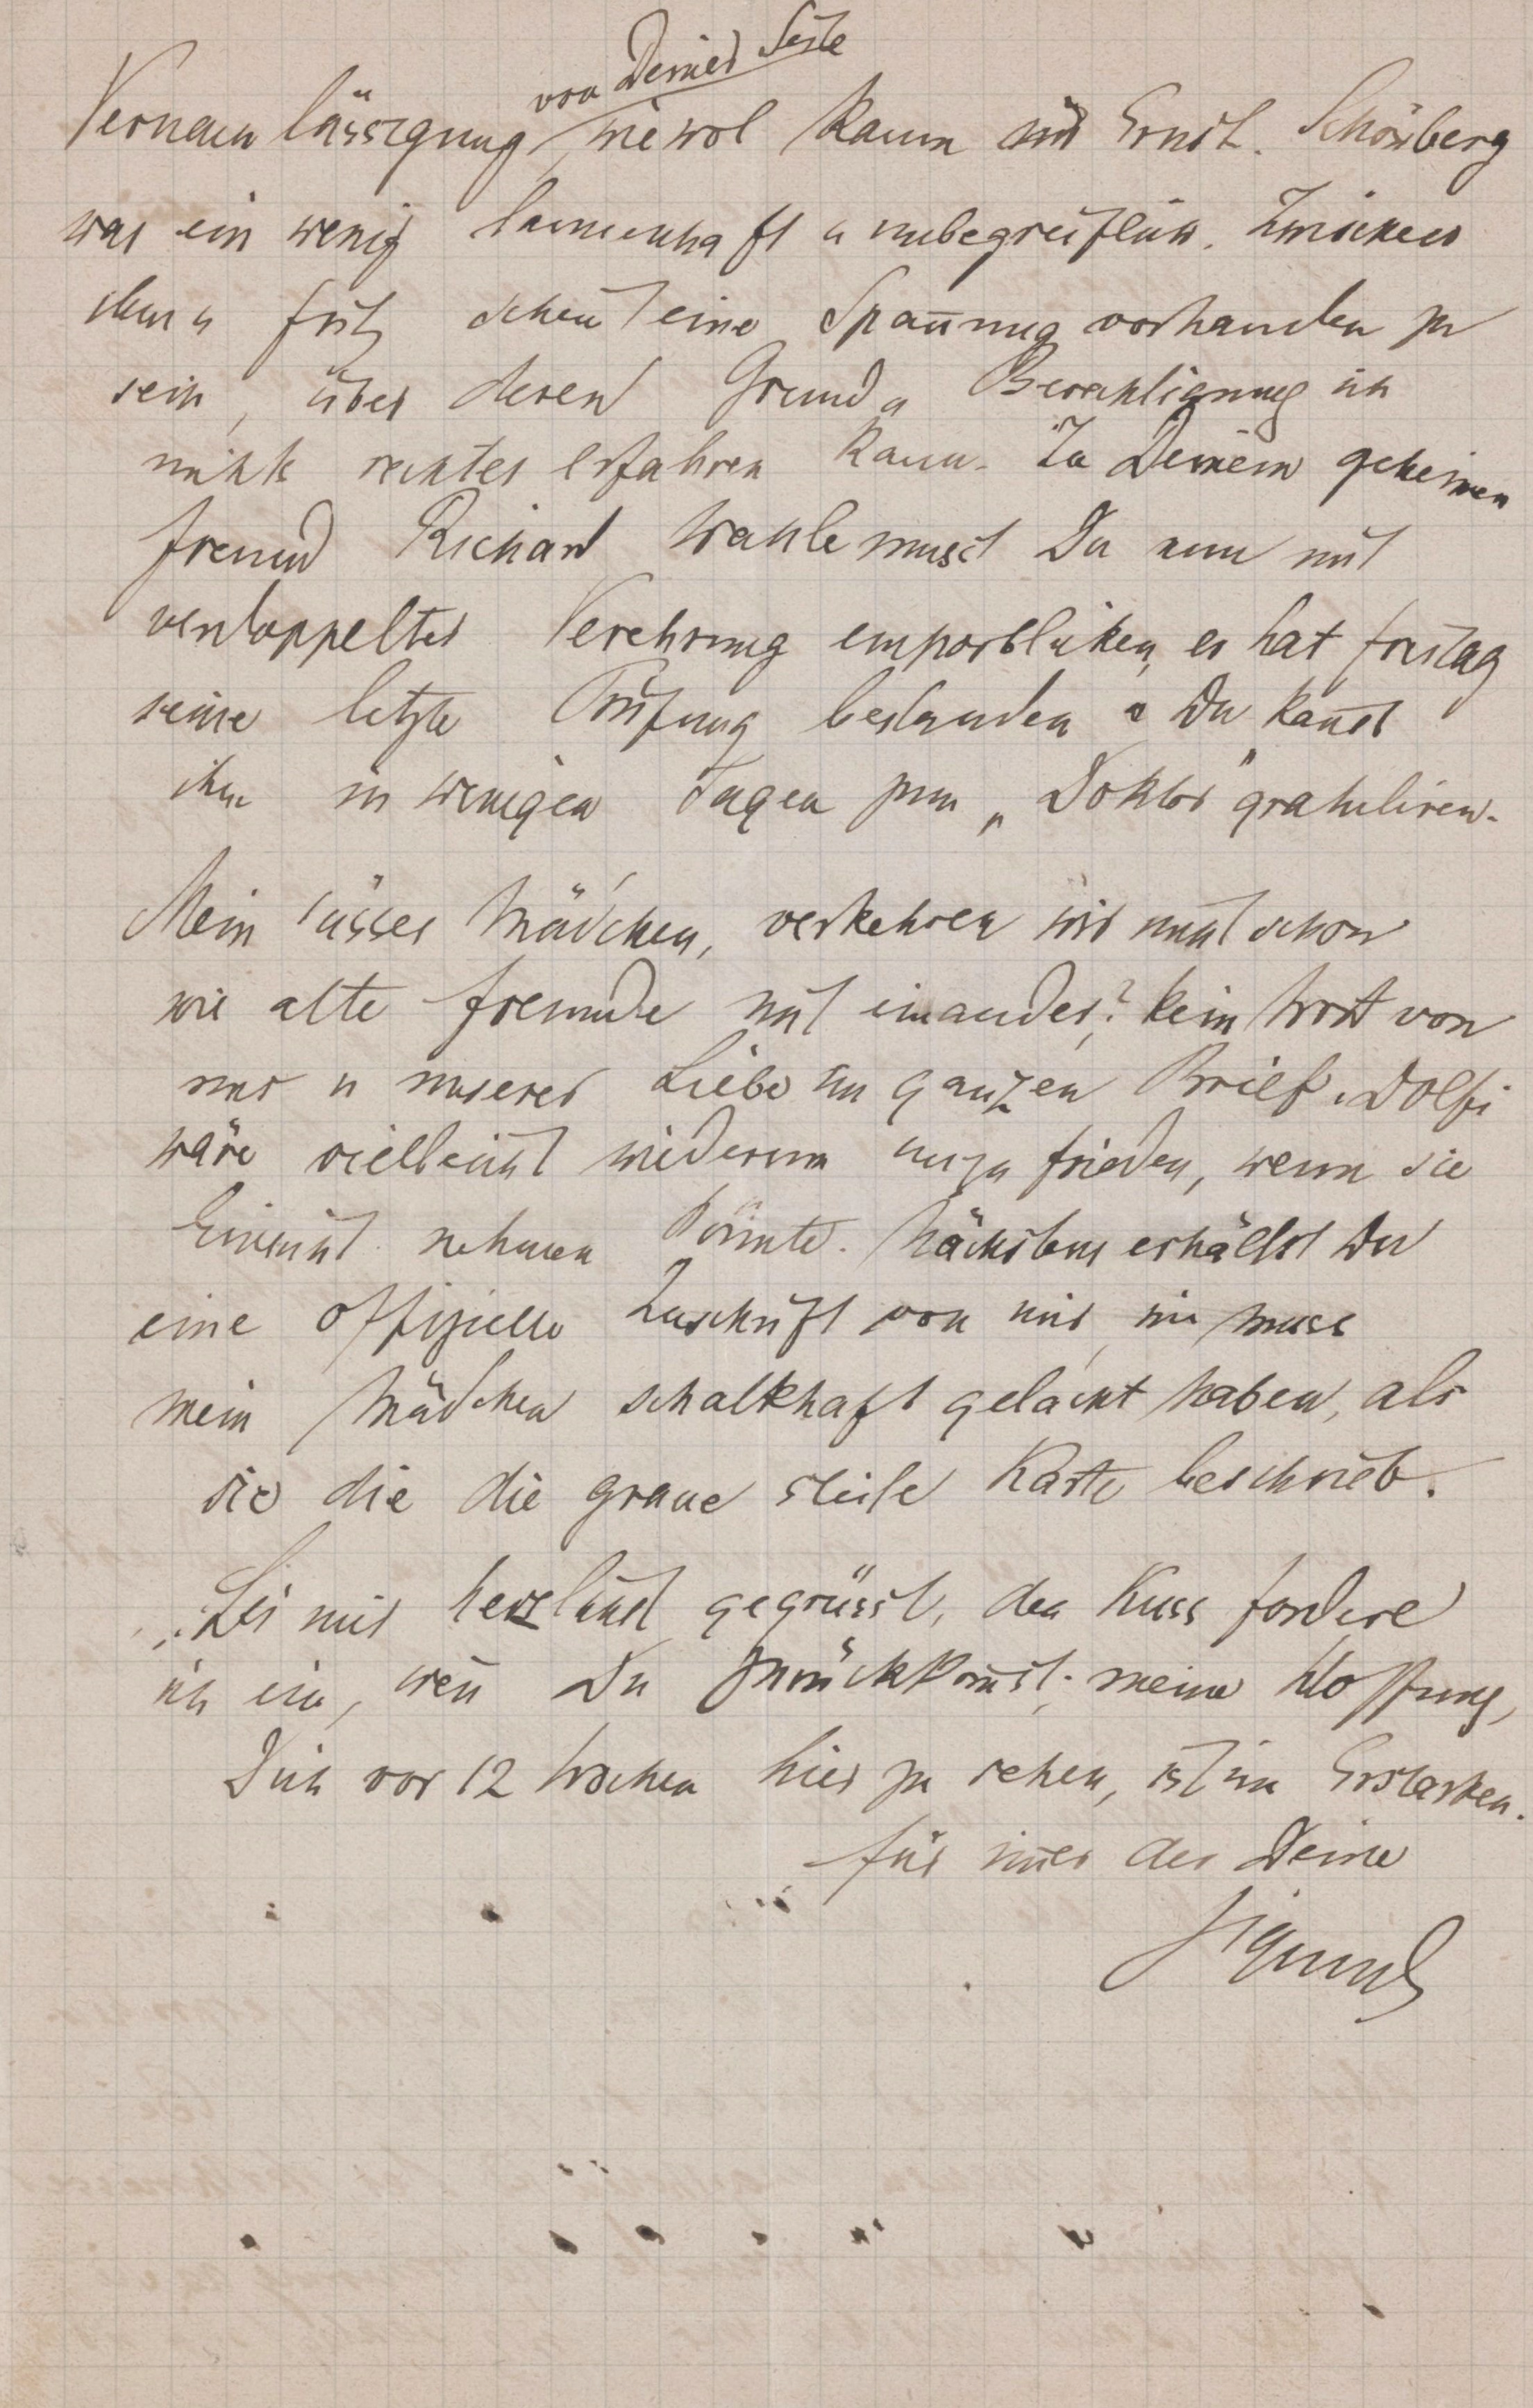 von Deiner Seite
Vernachlässigung, wiewol kaum im Ernst. Schönberg
war ein wenig launenhaft u unbegreiflich. Zwischen
ihm u Fritz scheint eine Spannung vorhanden zu
sein, über deren Grund u Berechtigung ich
nichts rechtes erfahren kann. Zu Deinem geheimen
Freund Richard Wahle musst Du nun mit
verdoppelter Verehrung emporblicken, er hat Freitag
seine letzte Prüfung bestanden u Du kan̄st
ihm in wenigen Tagen zum „Doktor" gratuliren.
Mein süsses Mädchen, verkehren wir nicht schon
wie alte Freunde mit einander? Kein Wort von
uns u unserer Liebe im ganzen Brief. Dolfi
wäre vielleicht wiederum unzufrieden, wenn sie
Einsicht nehmen könnte. Nächstens erhältst Du
eine offizielle Zuschrift von mir, wie muss
mein Mädchen schalkhaft gelacht haben, als
sie die die graue steife Karte beschrieb.
Sei mir herzlichst gegrüsst, den Kuss fordere
ich ein, wen̄ Du zurückkom̄st; meine Hoffnung,
Dich vor 12 Wochen hier zu sehen, ist im Erstarken.
Für im̄er der Deine
Sigmund